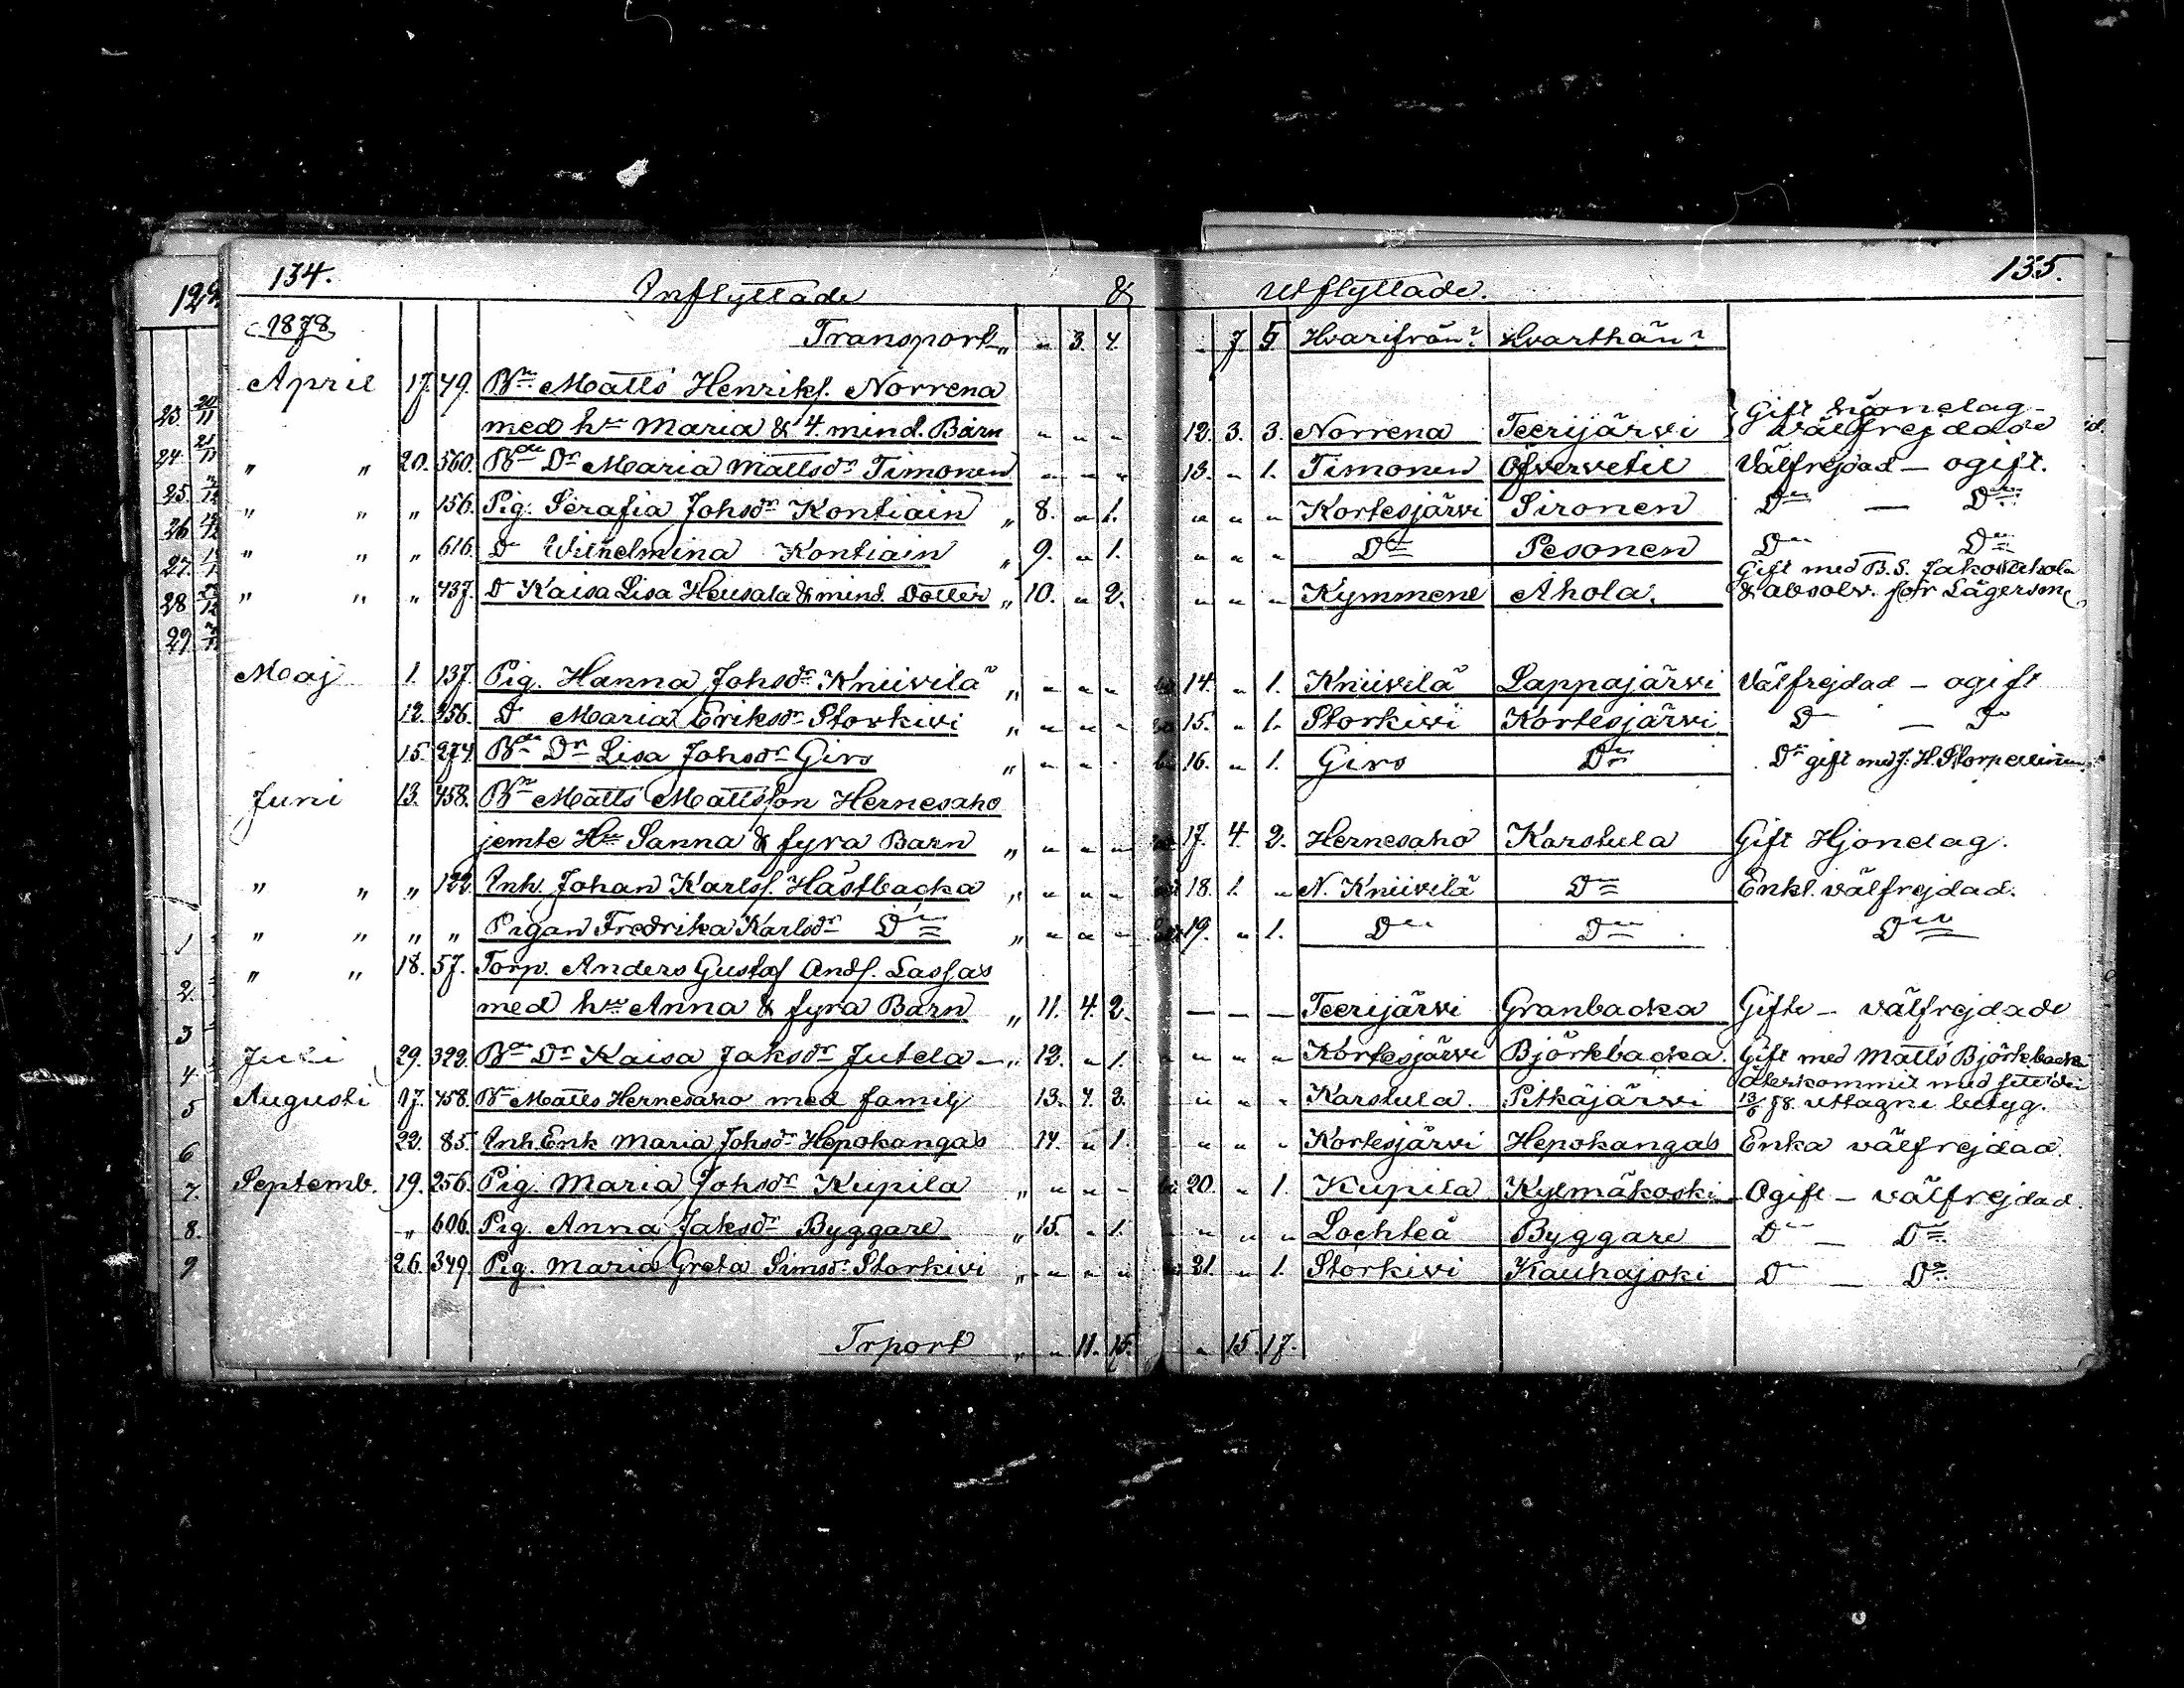 134. Inflyttade & Utflyttade. 135.
1878 Transport „ „ 3. 4. „ 7. 5. Hvarifrån? Hvarthän?
April 17. 49. Bn Matts Henriks. Norrena
Gift Hjonelag-
med hu Maria & 4 mind. Barn „ „ „ 12. 3. 3. Norrena Teerijärvi välfrejdade
„ „ 20. 560. Bde Dr Maria Mattsdr Timonen „ „ „ 13. „ 1. Timonen Öfvervetil Välfrejdad – ogift.
„ „ „ 156. Pig. Serafia Johsdr Kontiain „ 8. „ 1. „ „ „ Kortesjärvi Sironen Do — Do
„ „ „ 616. D Wilhelmina Kontiain „ 9. „ 1. „ „ „ Do Pesonen Do Do
Gift med B.S. Jakob Ahola
„ „ „ 437. D Kaisa Lisa Heusala & mind. Dotter „ 10. „ 2. „ „ „ Kymmene Ahola. & absolv. för Lägersm.
Maj 1. 137. Pig. Hanna Johsdr Kniivilä „ „ „ „ 14. „ 1. Kniivilä Lappajärvi Välfrejdad – ogift
12. 356. D Maria Eriksdr Storkivi „ „ „ „ 15. „ 1. Storkivi Kortesjärvi. D – Do
15. 274. Bde Dr Lisa Johsdr Girs „ „ „ 16. „ 1. Girs Do Do gift med J. H.
Juni 13. 458. Bn Matts Mattsson Hernesaho
jemte Hu Sanna & fyra Barn „ „ „ „ 17. 4. 2. Hernesaho Karstula Gift Hjonelag.
„ „ „ 122. Inh. Johan Karlss. Hästbacka „ „ „ „ 18. 1. „ N. Kniivilä Do Enkl. välfrejdad.
„ „ „ „ Pigan Fredrika Karlsdr Do „ „ „ „ 19. „ 1. Do Do Do
„ „ 18. 57. Torp. Anders Gustaf Ands. Lassas
med hu Anna & fyra Barn „ 11. 4. 2. — — — Teerijärvi Granbacka Gifte – välfrejdade
Juli 29. 322. Bde Dr Kaisa Jaksdr Jutela – „ 12. „ 1. „ „ „ Kortesjärvi Björkbacka. Gift med Matts Björkbacka
Återkommit med sitt den
Augusti 17. 458. Bn Matts Hernesaho med familj 13. 4. 2. „ „ „ Karstula. Pitkäjärvi 13/6 78. uttagne betyg.
22. 85. Inh. Enk Maria Johsdr Hepokangas 14. „ 1. „ „ „ Kortesjärvi Hepokangas Enka välfrejdad.
Septemb. 19. 256. Pig. Maria Johsdr Kupila „ „ „ – 20. „ 1. Kupila Kylmäkoski Ogift – välfrejdad.
„ 606. Pig. Anna Jaksdr Byggare „ 15. „ 1. „ „ „ Lochteå Byggare D – Do
26. 349. Pig. Maria Greta Simsdr Storkivi „ „ „ „ 21. „ 1. Storkivi Kauhajoki D – Do
Trport „ „ 11. 15. „ 15. 17.